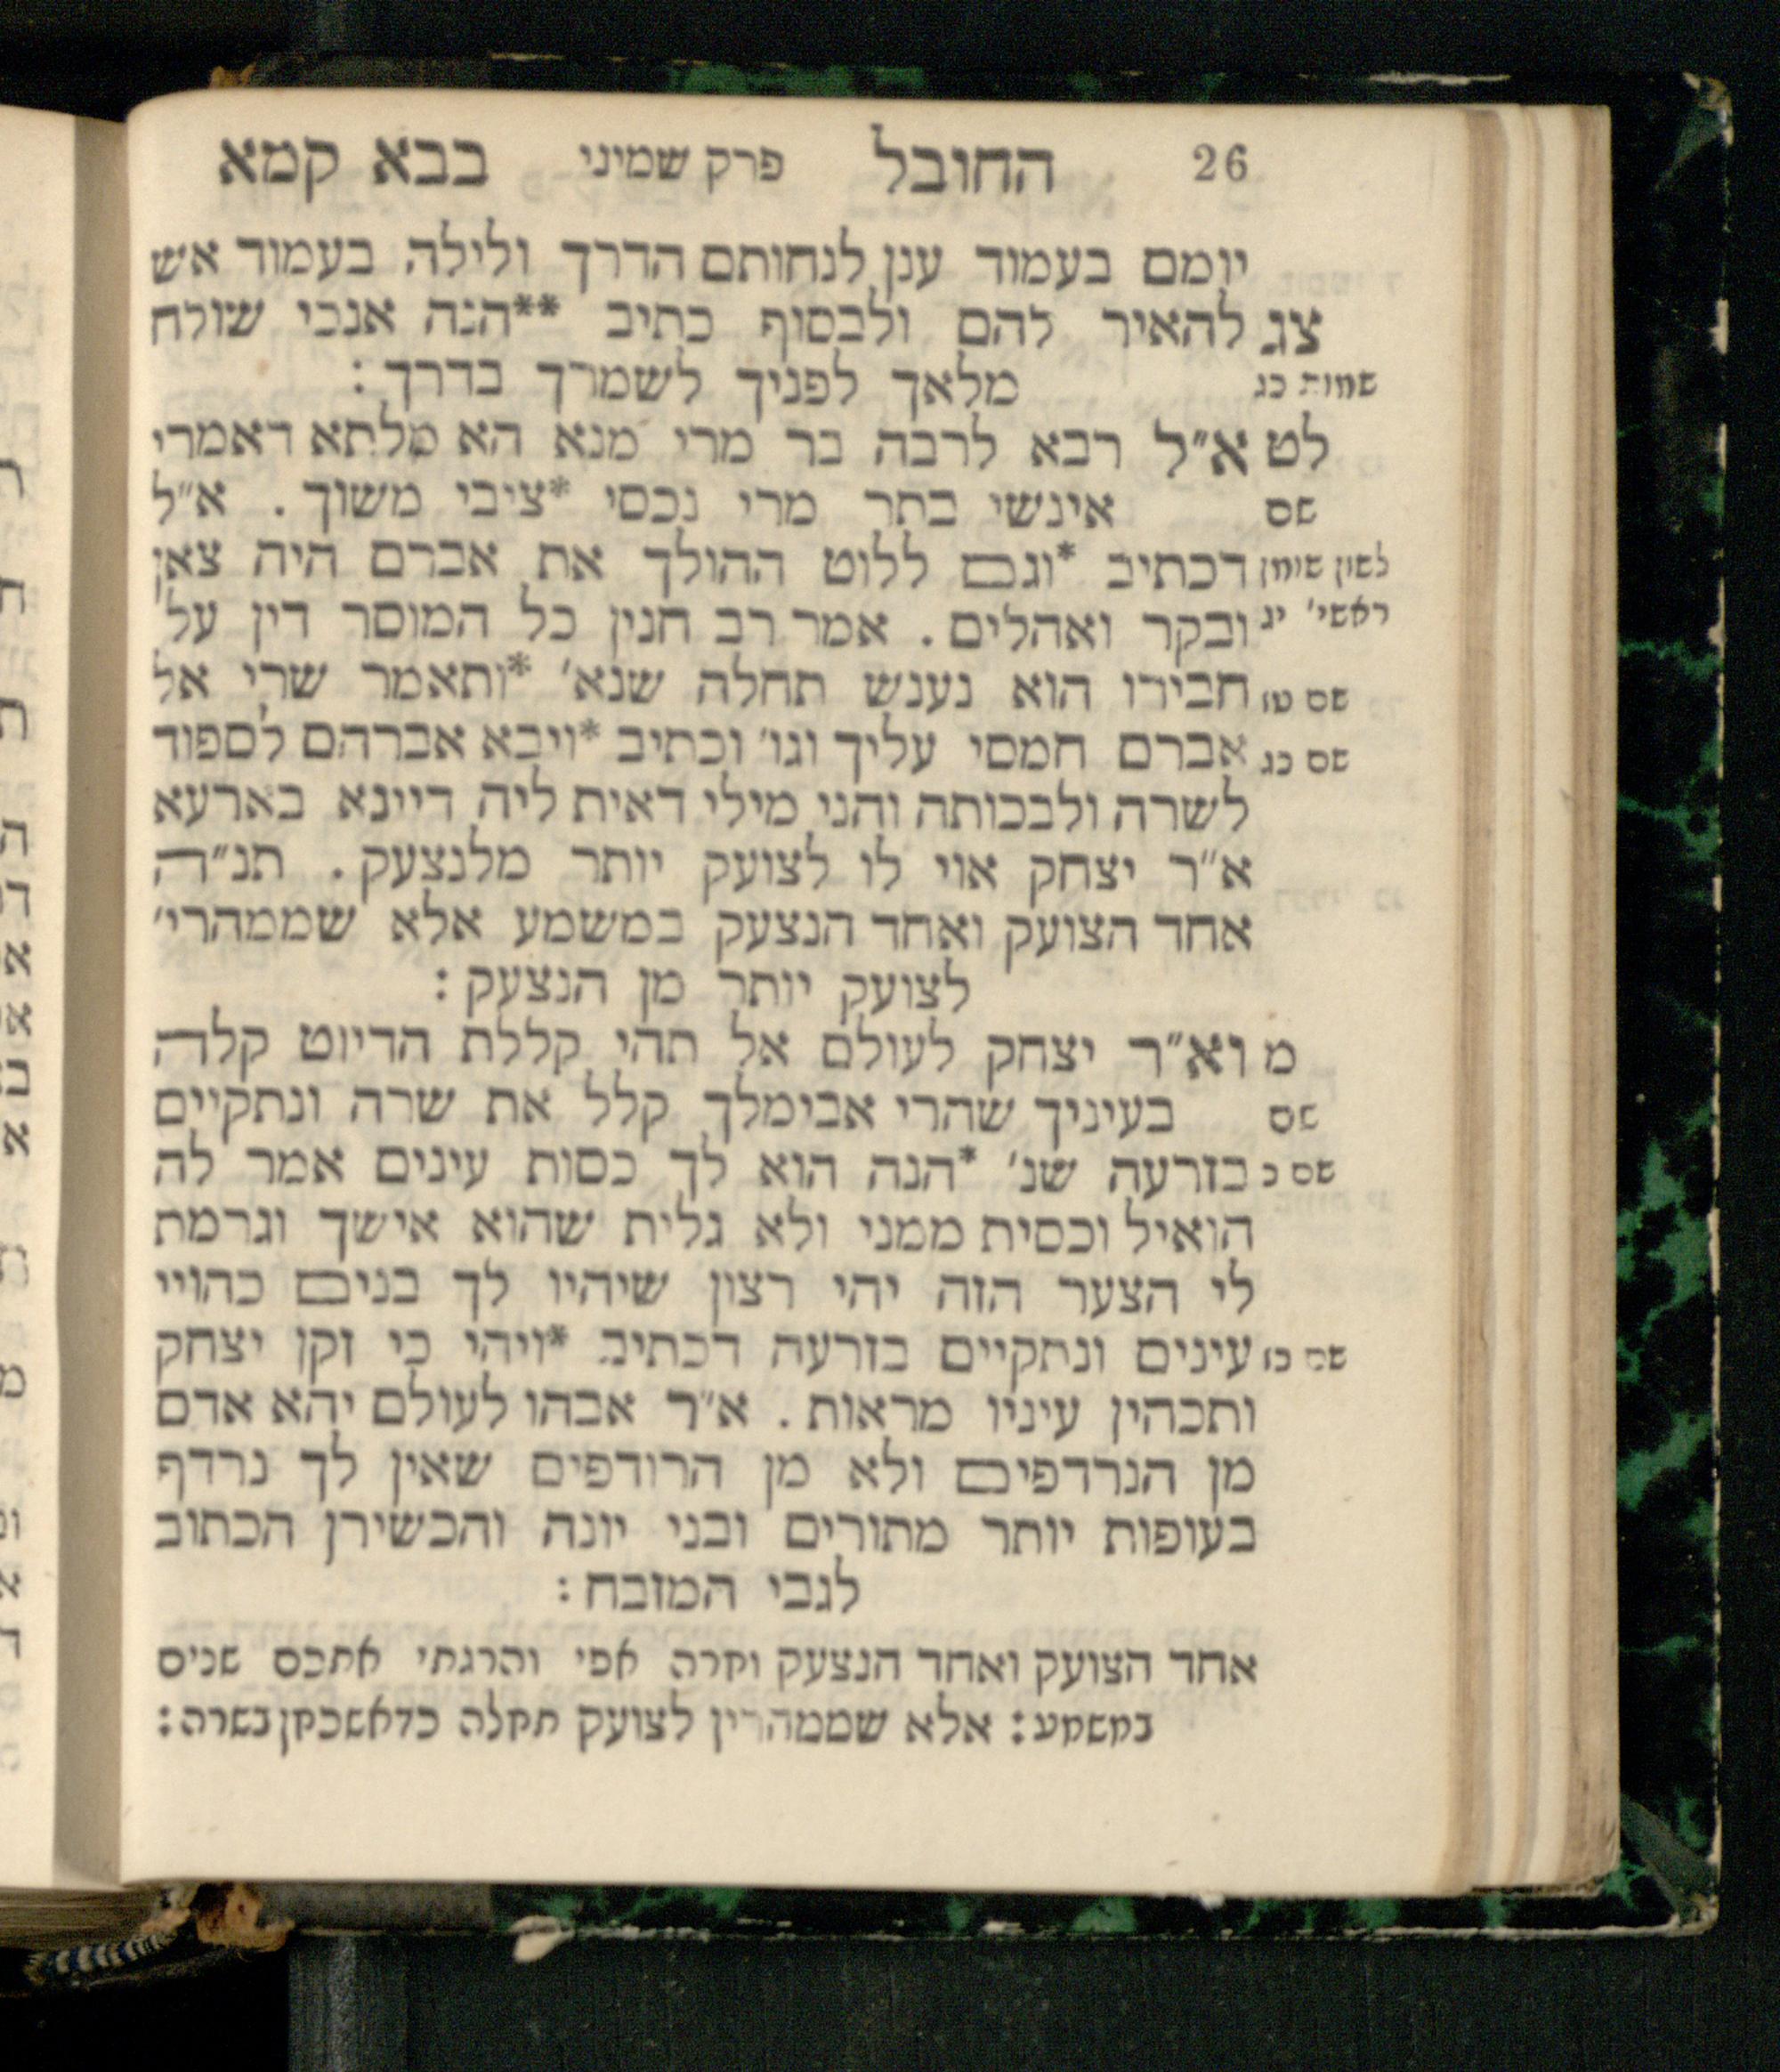 26 החובל פרק שמיני בבא קמא
יומם בעמוד ענן לנחותם הדרך ולילה בעמוד אש
צג להאיר להם ולבסוף כתיב **הנה אנכי שולח
שמות כג מלאך לפניך לשמרך בדרך:
לט א״ל רבא לרבה בר מרי מנא הא מלתא דאמרי
שם אינשי בתר מרי נכסי *ציבי משוך. א״ל
לשון שומן דכתיב *וגם ללוט ההולך את אברם היה צאן
ראשי׳ יג ובקר ואהלים. אמר רב חנין כל המוסר דין על
שם טז חבירו הוא נענש תחלה שנא׳ *ותאמר שרי אל
שם כג אברם חמסי עליך וגו׳ וכתיב *ויבא אברהם לספוד
לשרה ולבכותה והני מילי דאית ליה דיינא בארעא
א״ר יצחק אוי לו לצועק יותר מלנצעק. תנ״ה
אחד הצועק ואחד הנצעק במשמע אלא שממהרי׳
לצועק יותר מן הנצעק:
מ וא״ר יצחק לעולם אל תהי קללת הדיוט קלה
שם בעיניך שהרי אבימלך קלל את שרה ונתקיים
שם כ בזרעה שנ׳ *הנה הוא לך כסות עינים אמר לה
הואיל וכסית ממני ולא גלית שהוא אישך וגרמת
לי הצער הזה יהי רצון שיהיו לך בנים כהויי
שם כז עינים ונתקיים בזרעה דכתיב *ויהי כי זקן יצחק
ותכהין עיניו מראות. א״ר אבהו לעולם יהא אדם
מן הנרדפים ולא מן הרודפים שאין לך נרדף
בעופות יותר מתורים ובני יונה והכשירן הכתוב
לגבי המזבח:
אחד הצועק ואחד הנצעק וחרה אפי והרגתי אתכם שנים
במשמע: אלא שממהרין לצועק תחלה כדאשכחן בשרה: